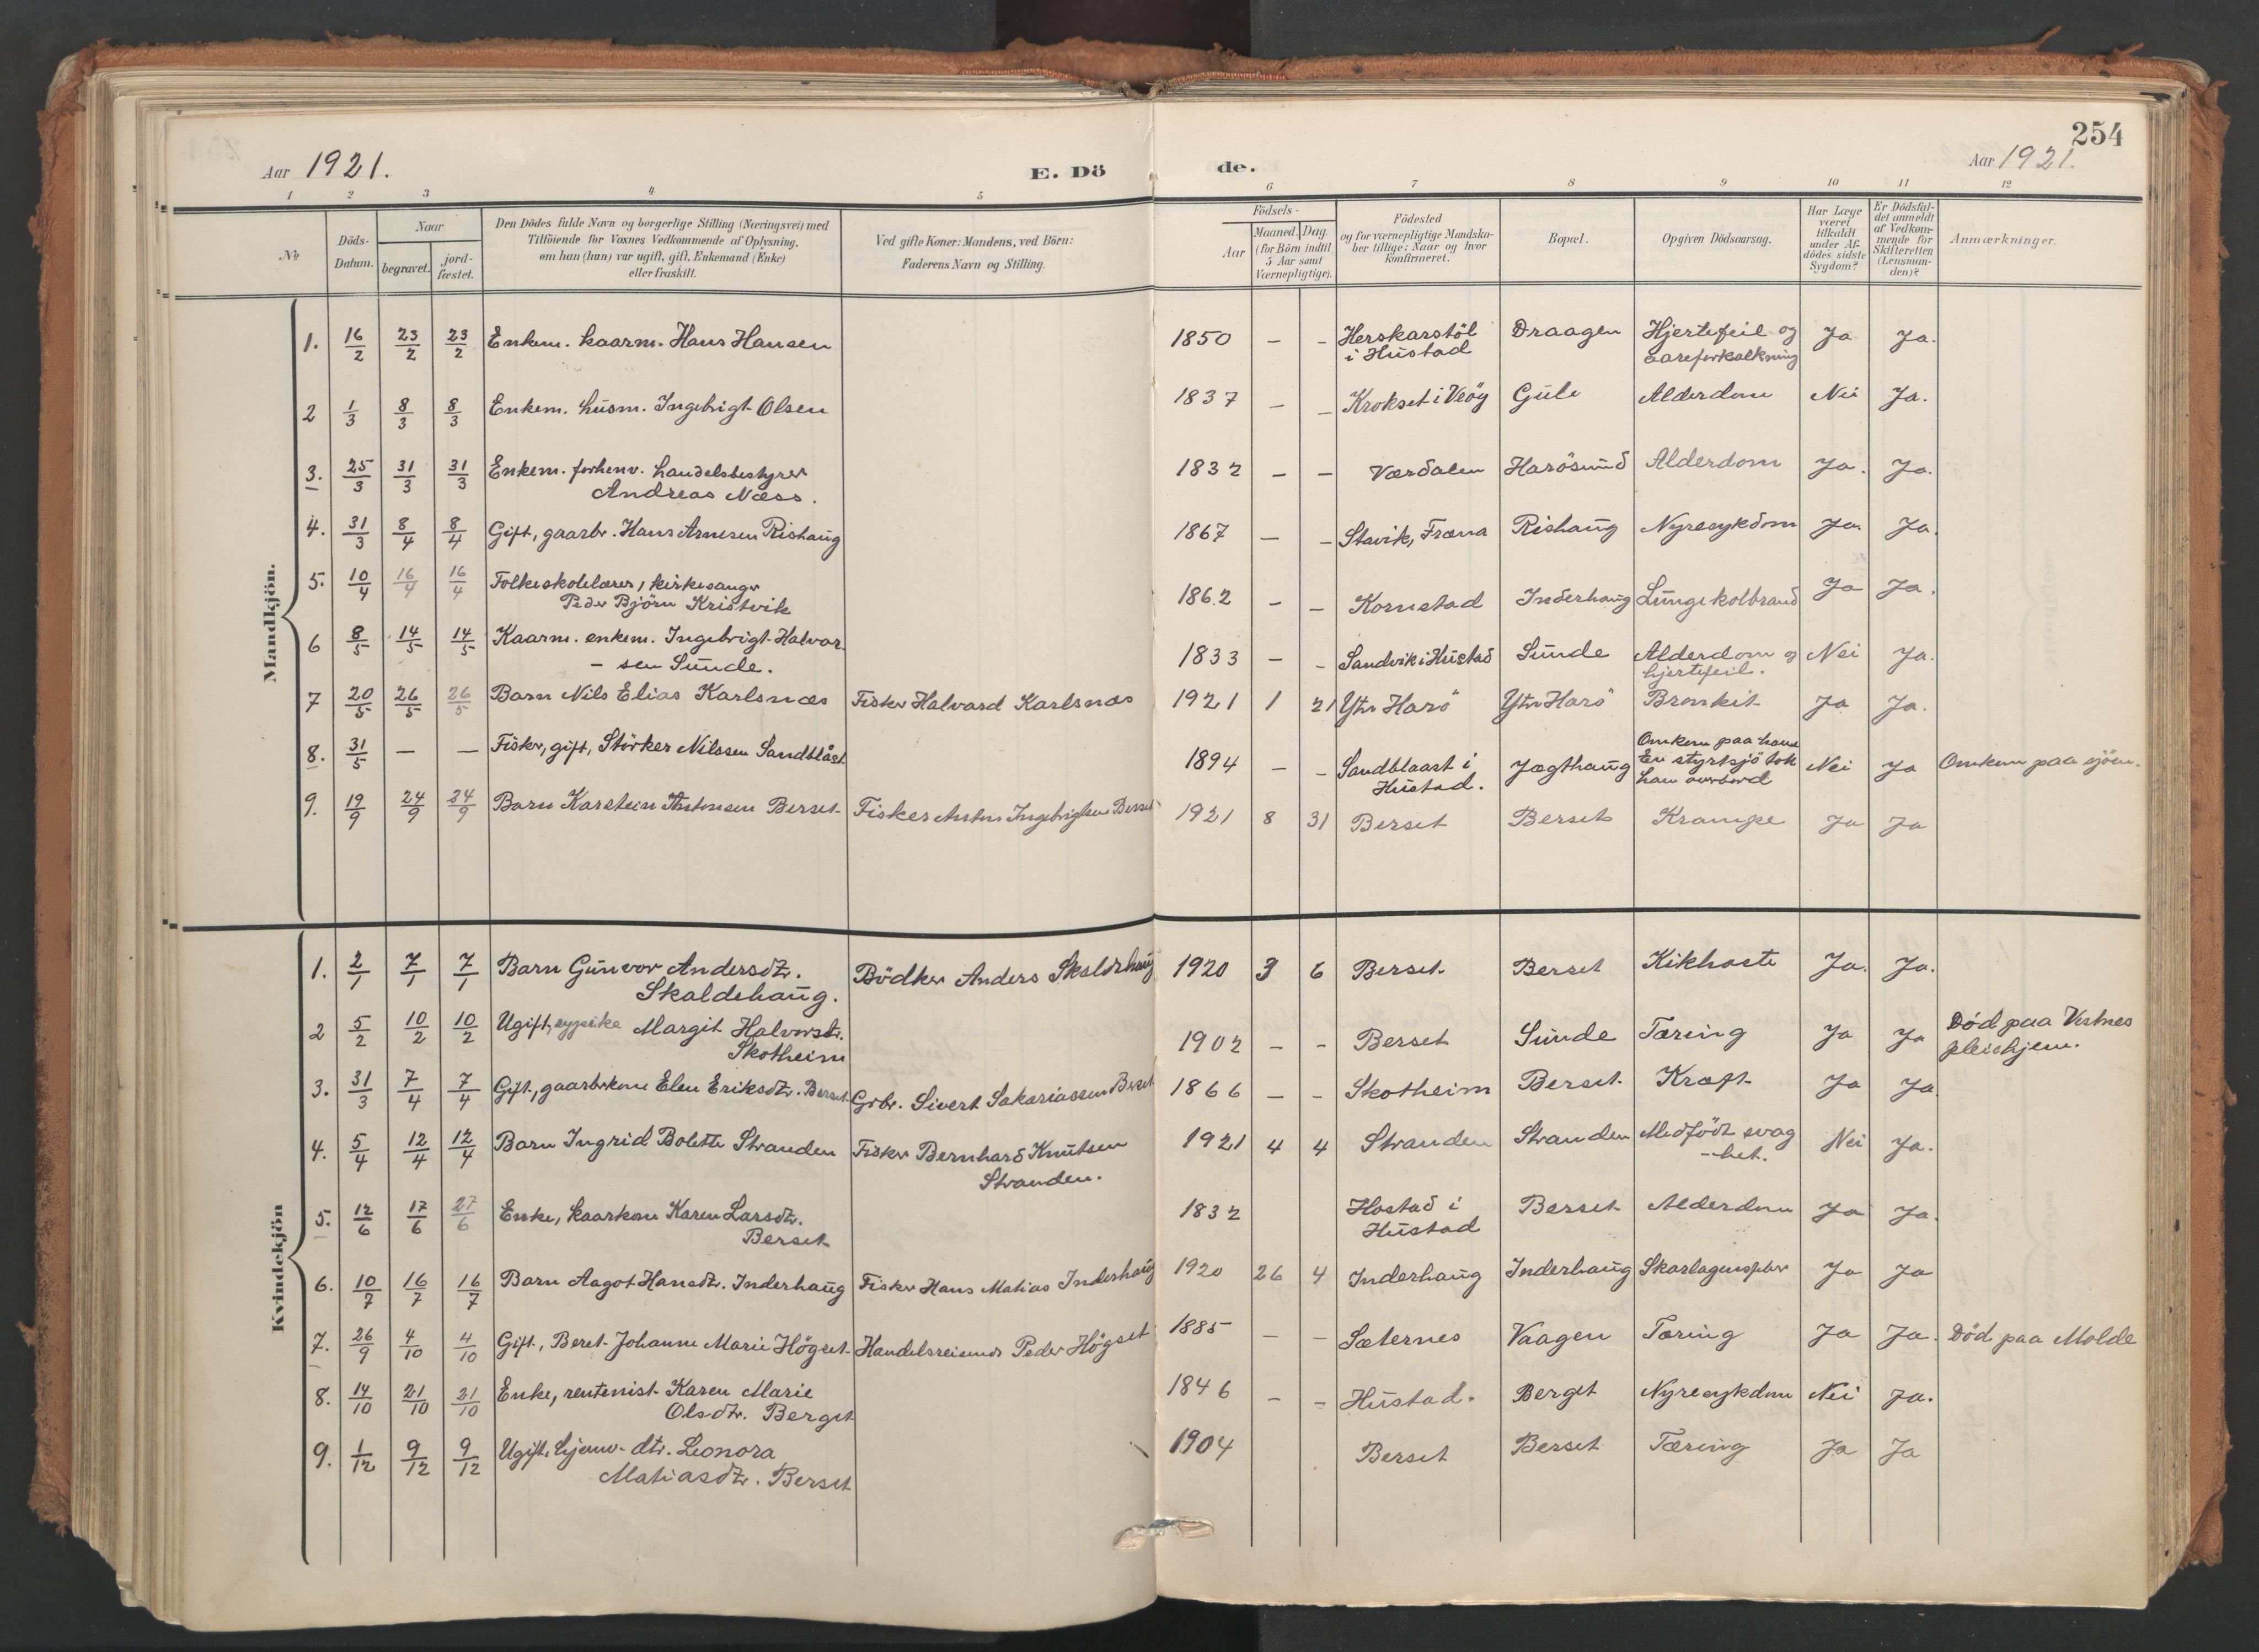 254
Aar 1921.
E. Dö
de.
Aar 1921.
1 2 3 4 5 6 7 8 9 10 11 12
No
Döds-
Datum.
Naar
begravet.
jord-
fæstet.
Den Dödes fulde Navn og borgerlige Stilling (Næringsvei) med
Tilföiende for Voxnes Vedkommende af Oplysning,
om han (hun) var ugift, gift, Enkemand (Enke)
eller fraskilt.
Ved gifte Koner: Mandens, ved Börn:
Faderens Navn og Stilling.
Födsels-
Aar
Maaned. Dag.
(for Börn indtil
5 Aar samt
Værnepligtige).
Födested
og for værnepligtige Mandska-
ber tillige: Naar og hvor
konfirmeret.
Bopæl.
Opgiven Dödsaarsag.
Har Læge
været
tilkaldt
under Af-
dödes sidste
Sygdom?
Er Dödsfal-
det anmeldt
af Vedkom-
mende for
Skifteretten
(Lensman-
den)?
Anmærkninger.
Mandkjön.
1. 16/2 23/2 23/2 Enkem. kaarm. Hans Hansen 1850 – – Herskarstöl
i Hustad Draagen Hjertefeil og
aareforkalkning Ja Ja.
2 1/3 8/3 8/3 Enkem. husm. Ingebrigt Olsen 1837 – – Krokset i Veöy Gule Alderdom Nei Ja.
3. 25/3 31/3 31/3 Enkem. forhenv. handelsbestyrer
Andreas Næss. 1832 – – Værdalen Harösund Alderdom Ja. Ja.
4. 31/3 8/4 8/4 Gift, gaarbr. Hans Arnesen Rishaug 1867 – – Stavik, Fræna Rishaug Nyresykdom Ja. Ja.
5. 10/4 16/4 16/4 Folkeskolelærer, kirkesanger
Peder Björn Kristvik 1862 – – Kornstad Inderhaug Lungekolbrand Ja Ja.
6 8/5 14/5 14/5 Kaarm. enkem. Ingebrigt Halvor-
– sen Sunde. 1833 – – Sandvik i Hustad Sunde Alderdom og
hjertefeil. Nei Ja.
7 20/5 26/5 26/5 Barn Nils Elias Karlsnæs Fisker Halvard Karlsnæs 1921 1 21 Ytr Harö Ytr Harö Bronkit Ja Ja.
8. 31/5 – – Fisker, gift, Störker Nilssen Sandblåst 1894 – – Sandblaast i
Hustad. Jægthaug Omkom paa havet
En styrtsjö tok
han overbord Nei Ja Omkom paa sjöen.
9. 19/9 24/9 24/9 Barn Karstein Antonsen Berset Fisker Anton Ingebrigtsen Berset 1921 8 31 Berset Berset Krampe Ja Ja
Kvindekjön
1. 2/1 7/1 7/1 Barn Gunvor Andersdtr.
Skaldehaug. Bödker Anders Skaldehaug 1920 3 6 Berset Berset Kikhoste Ja. Ja.
2 5/2 10/2 10/2 Ugift, sypike Margit Halvorsdtr.
Skotheim 1902 – – Berset Sunde Tæring Ja Ja Död paa Vestnes
pleiehjem.
3. 31/3 7/4 7/4 Gift, gaarbrkone Elen Eriksdtr. Berset Grbr. Sivert Sakariassen Berset 1866 – – Skotheim Berset Kræft Ja Ja.
4. 5/4 12/4 12/4 Barn Ingrid Bolette Stranden Fisker Bernhard Knutsen
Stranden. 1921 4 4 Stranden Stranden Medfödt svag
-het. Nei Ja.
5. 12/6 17/6 27/6 Enke, kaarkone Karen Larsdtr.
Berset 1832 Hostad i
Hustad Berset Alderdom Ja Ja.
6. 10/7 16/7 16/7 Barn Aagot Hansdtr. Inderhaug Fisker Hans Matias Inderhaug 1920 26 4 Inderhaug Inderhaug Skarlagensfeber Ja Ja
7. 26/9 4/10 4/10 Gift, Beret Johanne Marie Högset Handelsreisende Peder Högset 1885 – – Sæternes Vaagen Tæring Ja Ja. Död paa Molde
8. 14/10 21/10 21/10 Enke, rentenist Karen Marie
Olsdtr. Berget 1846 – – Hustad. Berget Nyresykdom Nei Ja.
9. 1/12 9/12 9/12 Ugift, hjemv. dtr. Leonora
Matiasdtr. Berset 1904 Berset Berset Tæring Ja Ja